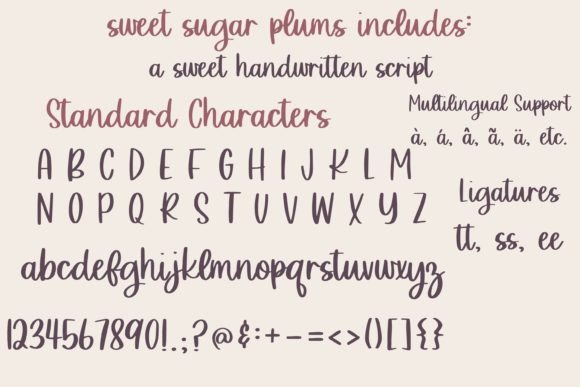 sweet sugar plums includes:
a sweet handwritten script
Standard Characters
A B C D E F G H I J K L M
N O P Q R S T U V W X Y Z
abcdefghijklmnopqrstuvwxyz
1234567890!.;?@&:+-=<>()[]{}
Multilingual Support
à, á, â, ã, ä, etc.
Ligatures
tt, ss, ee